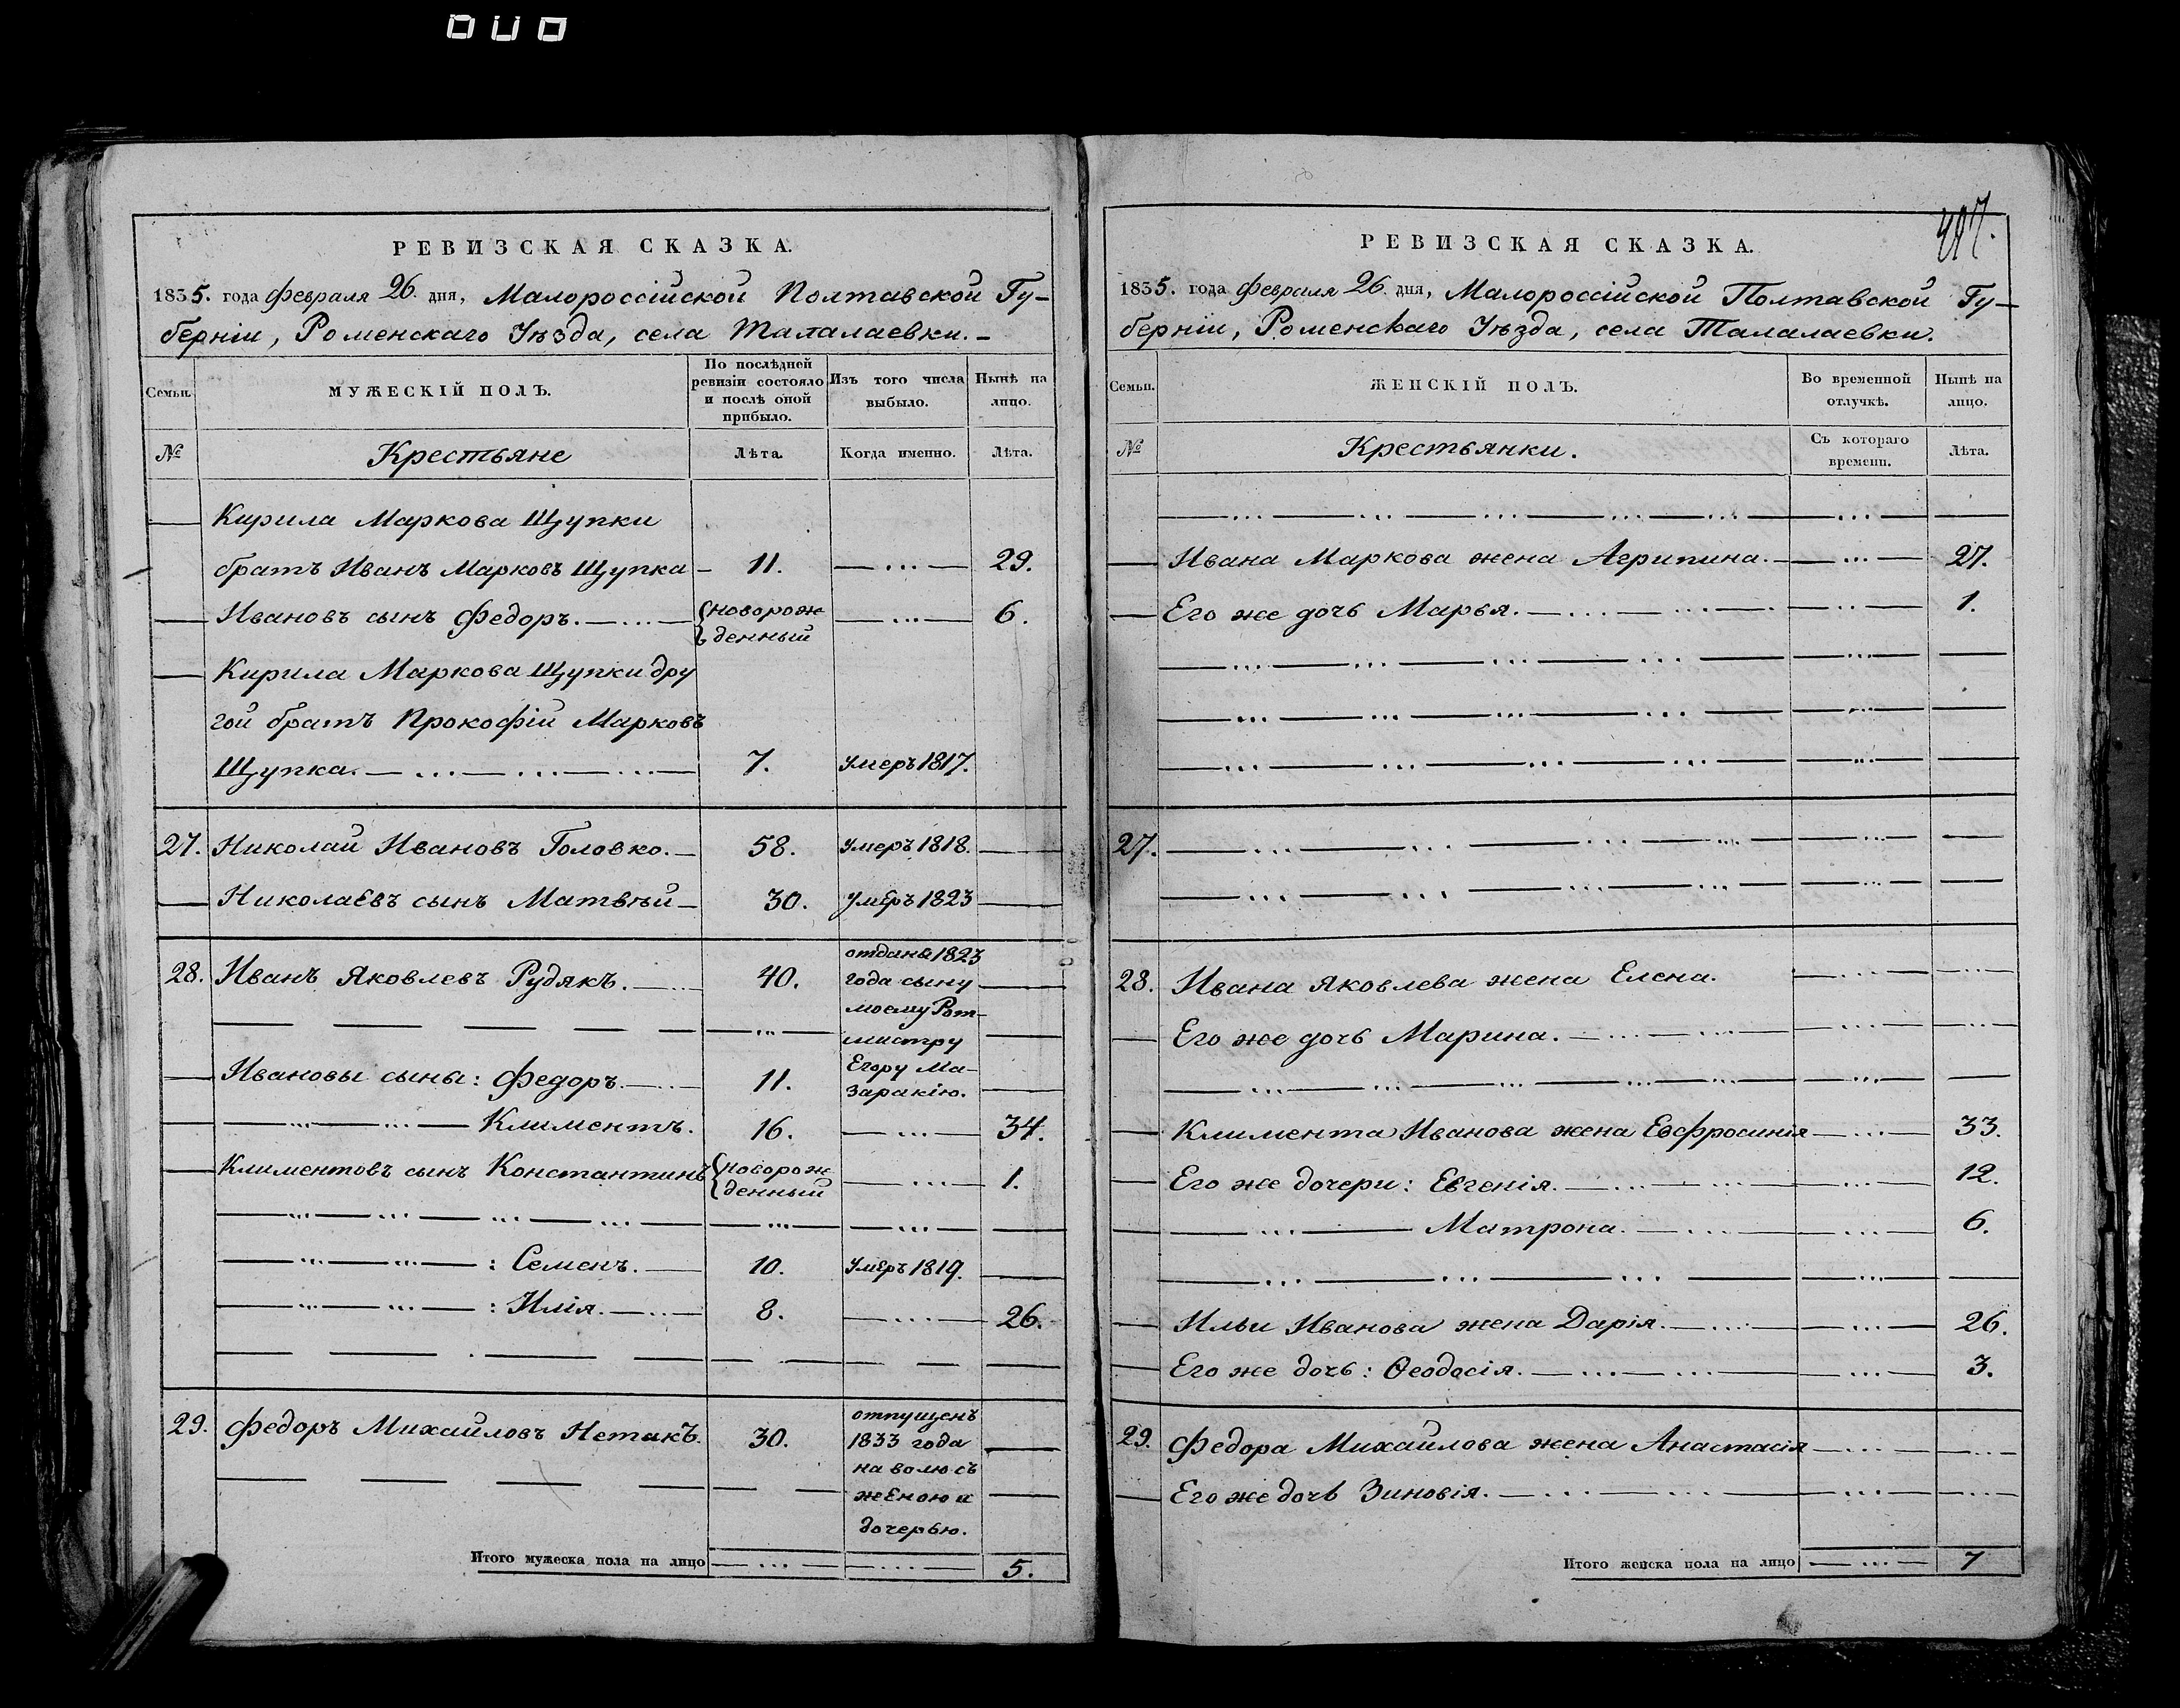 РЕВИЗСКАЯ СКАЗКА.
1835. года Февраля 26. дня, Малороссійской Полтавской Гу-
берніи, Роменскаго Уѣзда, села Талалаевки.
Семьи. МУЖЕСКІЙ ПОЛЪ. По послѣдней ревизіи состояло и послѣ оной прибыло. Изъ того числа выбыло. Нынѣ на лицо.
№ Крестьяне Лѣта. Когда именно. Лѣта.
Кирила Маркова Щупки
братъ Иванъ Марковъ Щупка 11. 29.
Ивановъ сынъ Федоръ. новорожденный 6.
Кирила Маркова Щупки дру
гой братъ Прокофій Марковъ
Щупка. 7. умеръ 1817.
27. Николай Ивановъ Головко. 58. умеръ 1818.
Николаевъ сынъ Матвѣй 30. умеръ 1823
28. Иванъ Яковлевъ Рудякъ. 40. отданы 1823
года сыну
моему Рот-
мистру
Ивановы сыны: Федоръ. 11. Егору Ма-
заракію.
Климентъ. 16. 34.
Климентовъ сынъ Константинъ новорожденный 1.
: Семенъ. 10. умеръ 1819.
: Илія. 8. 26.
29. Федоръ Михайловъ Нетакъ. 30. отпущенъ
1833 года
на волю съ
женою и
дочерью.
Итого мужеска пола на лицо 5.
497.
РЕВИЗСКАЯ СКАЗКА.
1835. года Февраля 26. дня, Малороссійской Полтавской Гу-
берніи, Роменскаго Уѣзда, села Талалаевки.
Семьи. ЖЕНСКІЙ ПОЛЪ. Во временной отлучкѣ. Нынѣ на лицо.
№ Крестьянки. Съ котораго времени. Лѣта.
Ивана Маркова жена Агрипина. 27.
Его же дочь Марья. 1.
27.
28. Ивана Яковлева жена Елена.
Его же дочь Марина.
Климента Иванова жена Евфросинія 33.
Его же дочери: Евгенія. 12.
Матрона. 6.
Ильи Иванова жена Дарія. 26.
Его же дочь: Ѳеодосія. 3.
29. Федора Михайлова жена Анастасія
Его же дочь Зиновія.
Итого женска пола на лицо 7